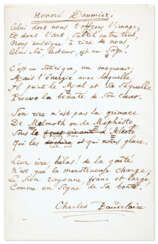 Honoré Daumier.
Celui dont nous t'offrons l'image,
Et dont l'art, subtil entre tous,
Nous enseigne à rire de nous,
Celui-là, lecteur, est un sage.
C'est un satirique, un moqueur,
Mais l'énergie avec laquelle
Il peint le Mal et sa séquelle
Prouve la beauté de son cœur.
Son rire n'est pas la grimace
De Melmoth ou de Méphisto
Sous d'Alecto
Qui les et qui nous glace.
Leur rire, hélas! de la gaîté
N'est que la monstrueuse charge;
Le sien rayonne, franc et large,
Comme un signe de sa bonté.
Charles Baudelaire